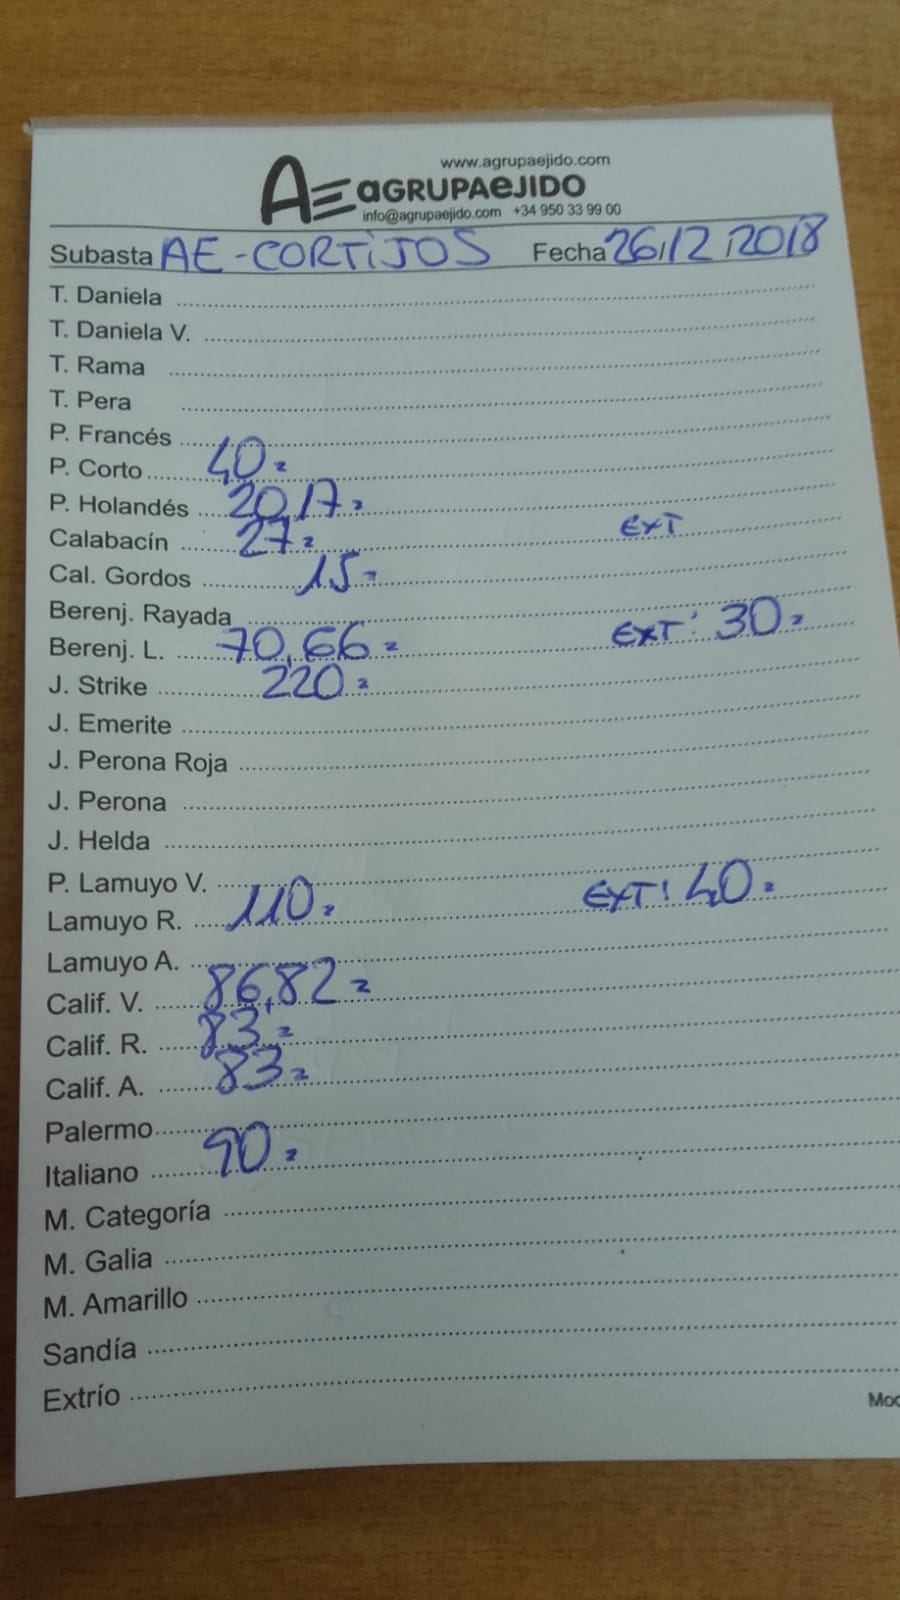 www.agrupaejido.com
AE aGRUPAeJIDO
info@agrupaejido.com +34 950 33 99 00
Subasta AE-CORTiJOS Fecha 26/12/2018
T. Daniela
T. Daniela V.
T. Rama
T. Pera
P. Francés
P. Corto 40=
P. Holandés 20,17=
Calabacín 27= EXT
Cal. Gordos 15=
Berenj. Rayada
Berenj. L. 70,66= EXT: 30=
J. Strike 220=
J. Emerite
J. Perona Roja
J. Perona
J. Helda
P. Lamuyo V.
Lamuyo R. 110= EXT: 40=
Lamuyo A.
Calif. V. 86,82=
Calif. R. 83=
Calif. A. 83=
Palermo
Italiano 90=
M. Categoría
M. Galia
M. Amarillo
Sandía
Extrío